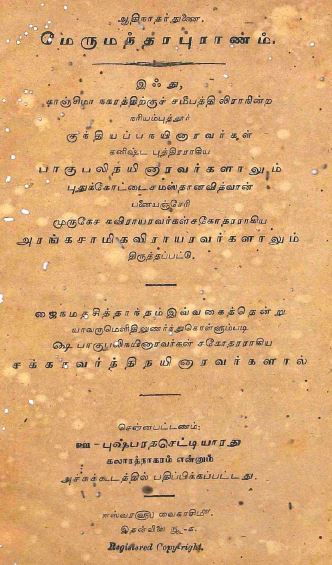 ஆதிநாதர்துணை.
மேருமந்தரபுராணம்.
இஃது,
காஞ்சிமா நகரத்திற்குச் சமீபத்தி லிராகின்ற
கரியம்புத்தூர்
குந்தியப்பநயினாரவர்கள்
கனிஷ்ட புத்திரராகிய
பாகுபலிநயினாரவர்களாலும்
புதுக்கோட்டைசமஸ்தானவித்வான்
பனையஞ்சேரி
முருகேச கவிராயரவர்கள்சகோதரராகிய
அரங்கசாமிகவிராயரவர்களாலும்
திருத்தப்பட்டு,
ஜைநமதசித்தாந்தம்இவ்வகைத்தென்று
யாவருமெளிதிலுணர்ந்துகொள்ளும்படி
ஷை பாகுபலிநயினாரவர்கள் சகோதரராகிய
சக்கரவர்த்திநயினாரவர்களால்
சென்னபட்டணம்:
ஊ - புஷ்பரதசெட்டியாரது
கலாரத்நாகரம் என்னும்
அச்சுக்கூடத்தில் பதிப்பிக்கப்பட்டது.
ஈஸ்வரளு வைகாசிமீ
இதன்விலை ரூ - க.
Registered Copyright.